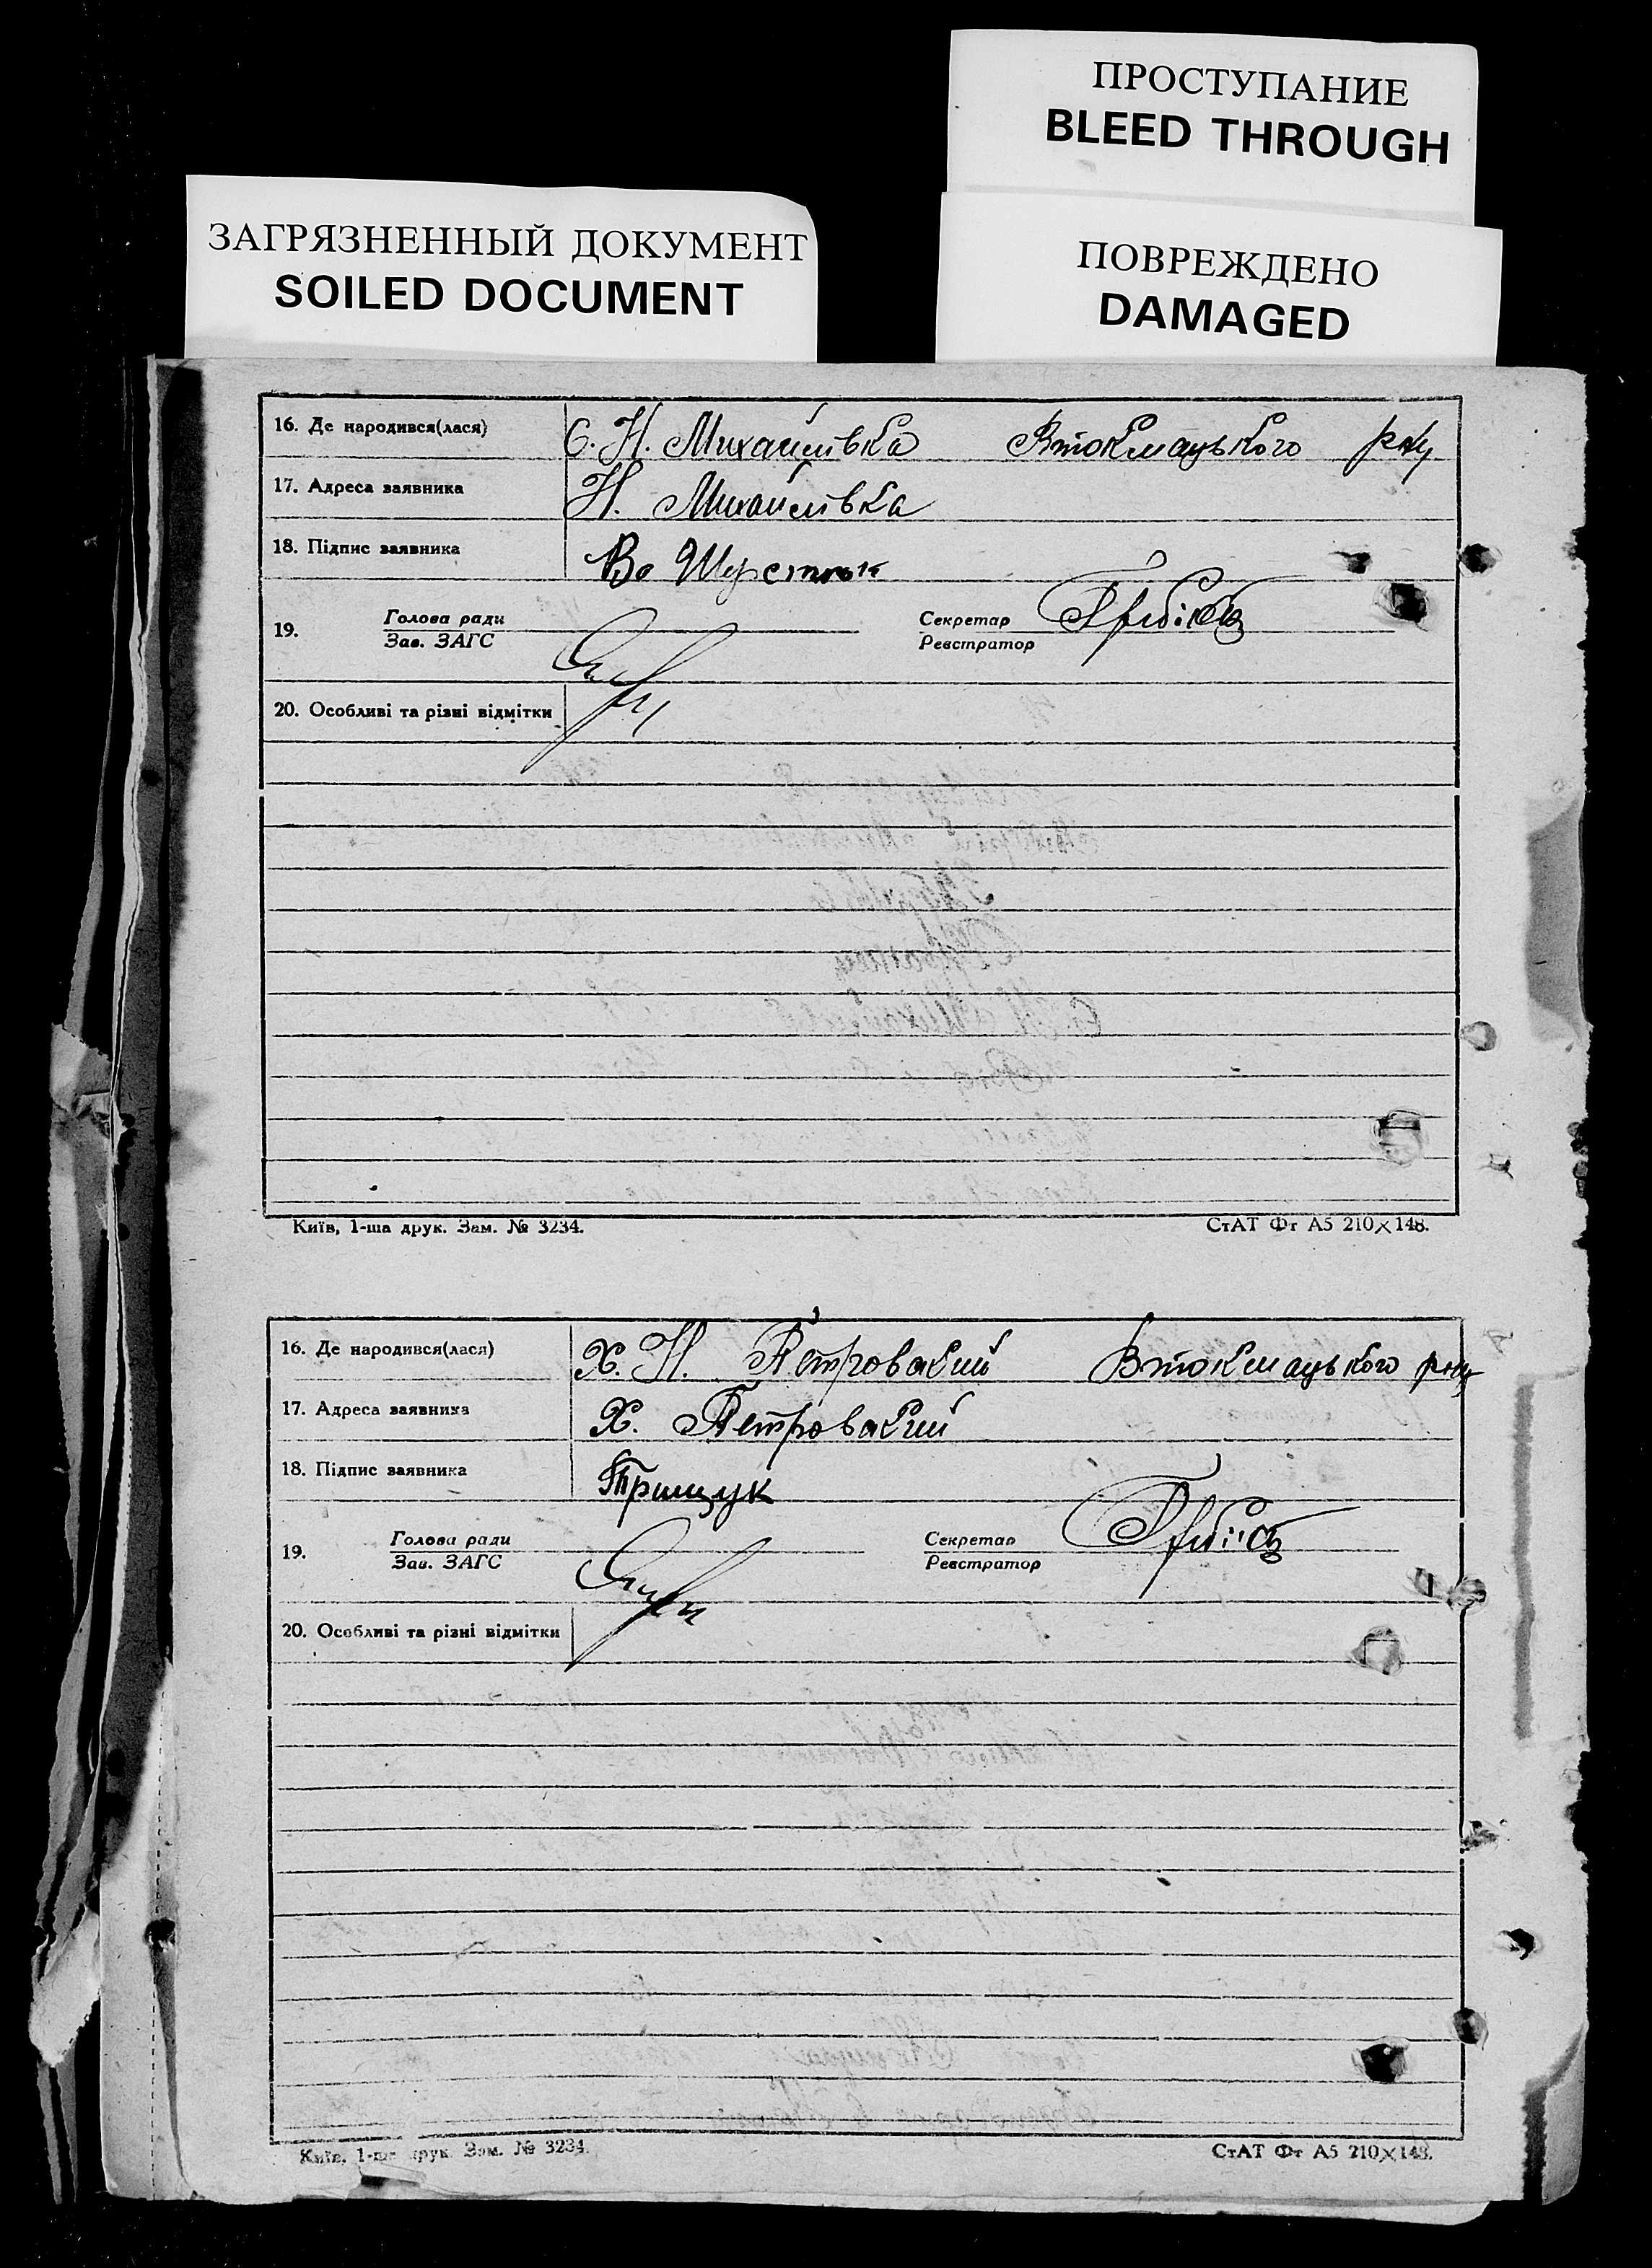 ПРОСТУПАНИЕ
BLEED THROUGH
ЗАГРЯЗНЕННЫЙ ДОКУМЕНТ
SOILED DOCUMENT
ПОВРЕЖДЕНО
DAMAGED
16. Де народився(лася) С. Н. Михайлівка Втокмацького р-ну
17. Адреса заявника Н. Михайлівка
18. Підпис заявника Во Шерстюк
19. Голова ради Секретар
Зав. ЗАГС Реєстратор
20. Особливі та різні відмітки
Київ, 1-ша друк. Зам. № 3234. СтАТ Фт А5 210×148.
16. Де народився(лася) Х. Н. Петровський Втокмацького р-ну
17. Адреса заявника Х. Петровський
18. Підпис заявника Трищук
19. Голова ради Секретар
Зав. ЗАГС Реєстратор
20. Особливі та різні відмітки
Київ, 1-ша друк. Зам. № 3234. СтАТ Фт А5 210×148.